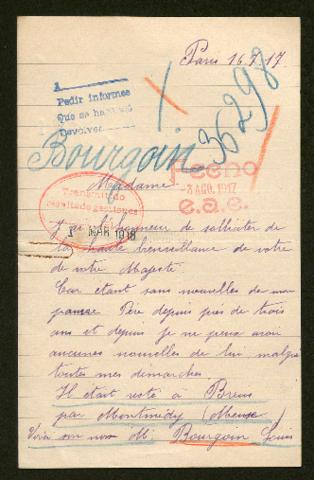 Paris 16.7.17
A
Pedir informes
Que se ha
Devolver
36298
Bourgoin
Madame
Fecho
-3 AGO. 1917
e.a.e.
Transmitido
resultado gestiones
1 MAR 1918
J'ai l'honneur de solliciter de
la haute bienveillance de votre
de votre Majesté
Car étant sans nouvelles de mon
pauvre Père depuis près de trois
ans et depuis je ne peux avoir
aucunes nouvelles de lui malgré
toutes mes démarches.
Il était resté à
par Montmédy (Meuse
Voici son nom Mr Bourgoin Louis